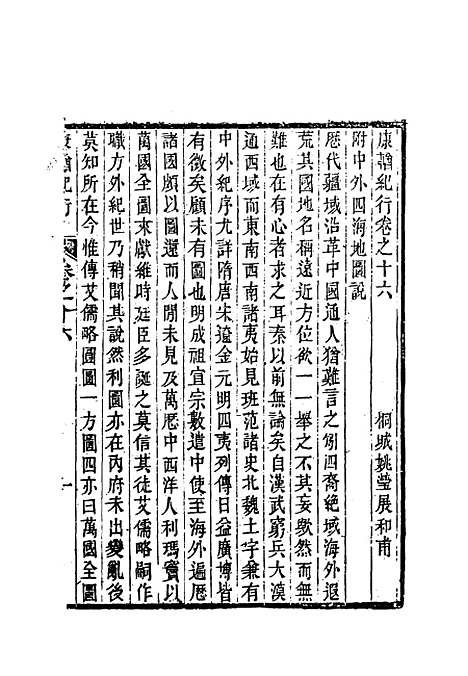 康輶紀行卷之十六
桐城姚瑩展和甫
附中外四海地圖說
歷代疆域沿革中國通人猶難言之矧四裔絶域海外遐
荒其國地名稱遠近方位欲一一舉之不其妄歟然而無
難也在有心者求之耳秦以前無論矣自漢武窮兵大漠
通西域而東南西南諸夷始見班范諸史北魏土宇兼有
中外紀序尤詳隋唐宋遼金元明四夷列傳日益廣博皆
有徵矣顧未有圖也明成祖宣宗數遣中使至海外遍歷
諸國頗以圖還而人間未見及萬歷中西洋人利瑪竇以
萬國全圖來獻維時廷臣多誕之莫信其徒艾儒略嗣作
職方外紀世乃稍聞其說然利圖亦在內府未出變亂後
莫知所在今惟傳艾儒略圓圖一方圖四亦曰萬國全圖
康輶紀行 卷之十六 一